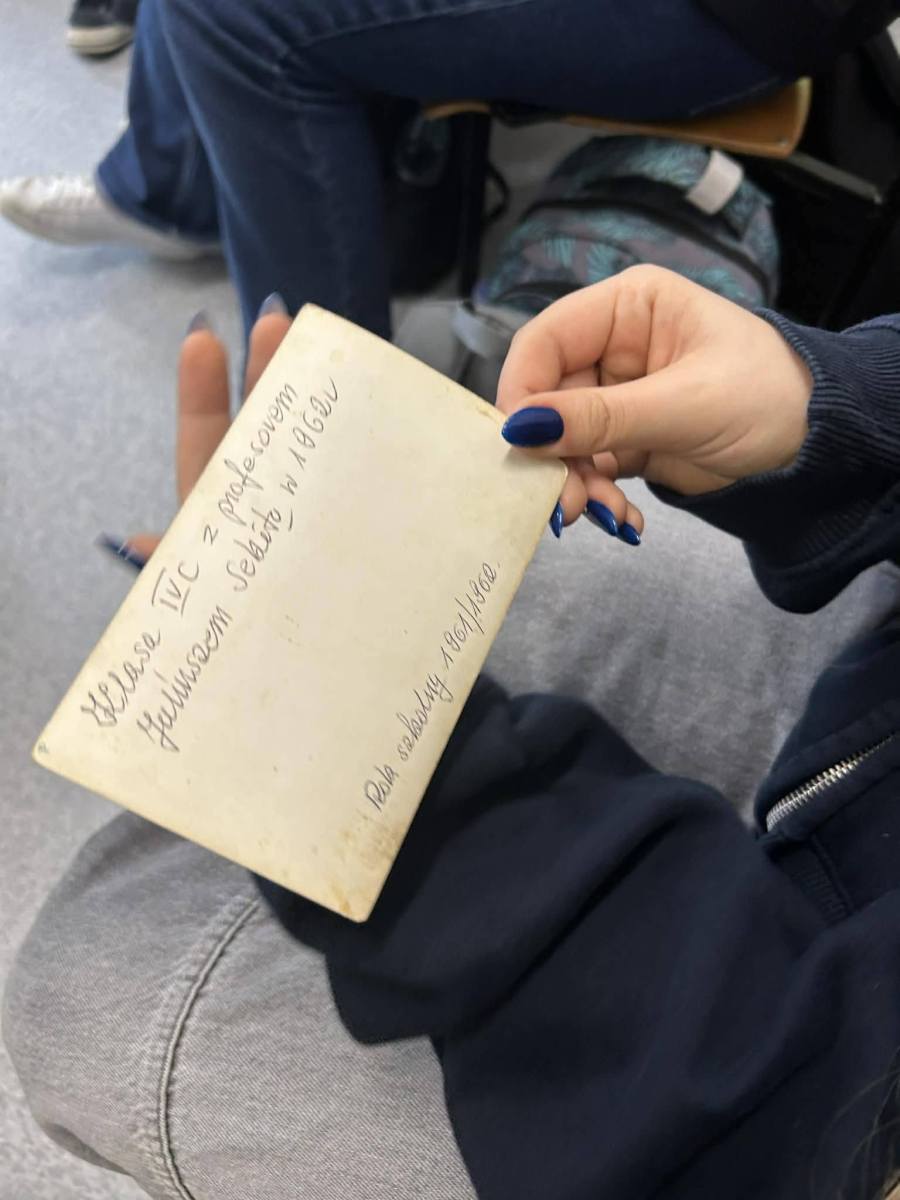 Klasa IVC z profesorem
Juliuszem w 1962r
Rok szkolny 1961/1962.